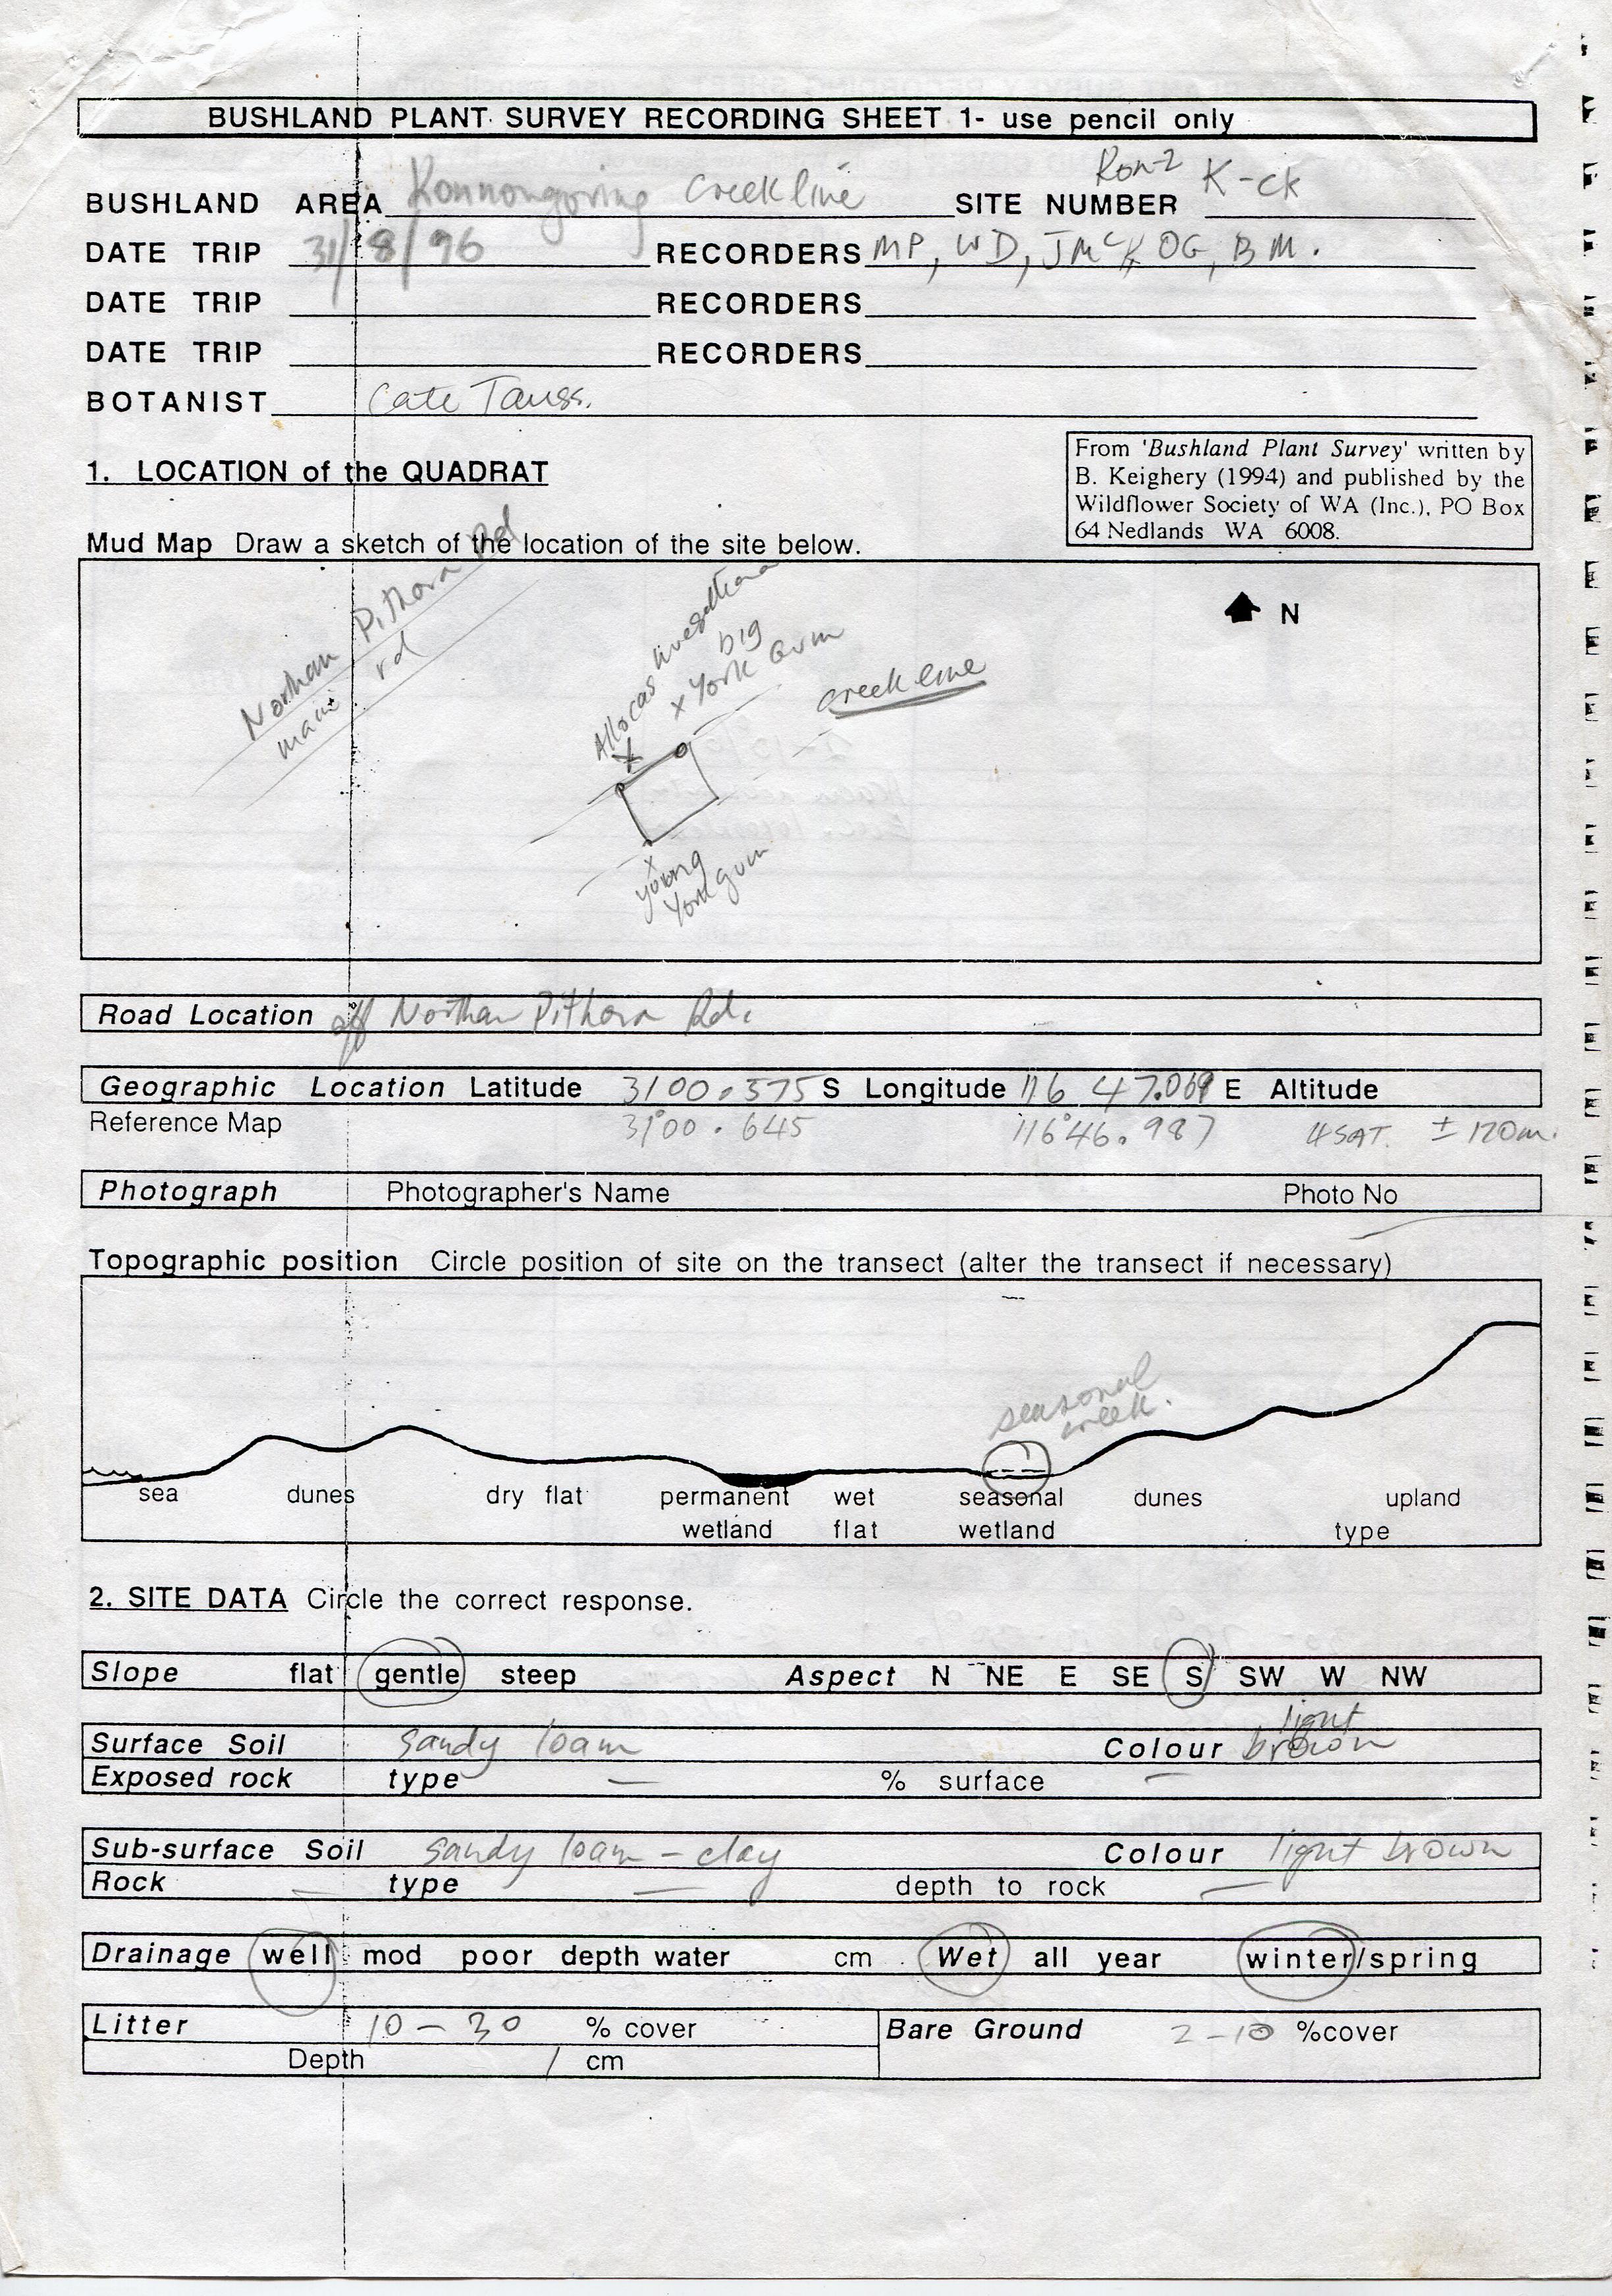 BUSHLAND PLANT SURVEY RECORDING SHEET 1- use pencil only
BUSHLAND AREA Konnongorring Creekline SITE NUMBER Kon-2 K-ck
DATE TRIP 31/8/96 RECORDERS MP, WD, JMcK, OG, BM.
DATE TRIP RECORDERS
DATE TRIP RECORDERS
BOTANIST Cate Tauss.
From 'Bushland Plant Survey' written by
B. Keighery (1994) and published by the
Wildflower Society of WA (Inc.), PO Box
64 Nedlands WA 6008.
1. LOCATION of the QUADRAT
Mud Map Draw a sketch of the location of the site below.
Northam Pithara Rd
main rd
Allocas
big
x York Gum
creekline
N
x
young
York gum
Road Location off Northam Pithara Rd.
Geographic Location Latitude 31 00.575 S Longitude 116 47.069 E Altitude
Reference Map 31°00.645 116°46.987 4 SAT. ± 120m.
Photograph Photographer's Name Photo No
Topographic position Circle position of site on the transect (alter the transect if necessary)
seasonal
creek.
sea dunes dry flat permanent wet seasonal dunes upland
wetland flat wetland type
2. SITE DATA Circle the correct response.
Slope flat gentle steep Aspect N NE E SE S SW W NW
Surface Soil sandy loam Colour light brown
Exposed rock type — % surface —
Sub-surface Soil sandy loam - clay Colour light brown
Rock — type — depth to rock —
Drainage well mod poor depth water cm Wet all year winter/spring
Litter 10-30 % cover Bare Ground 2-10 %cover
Depth / cm